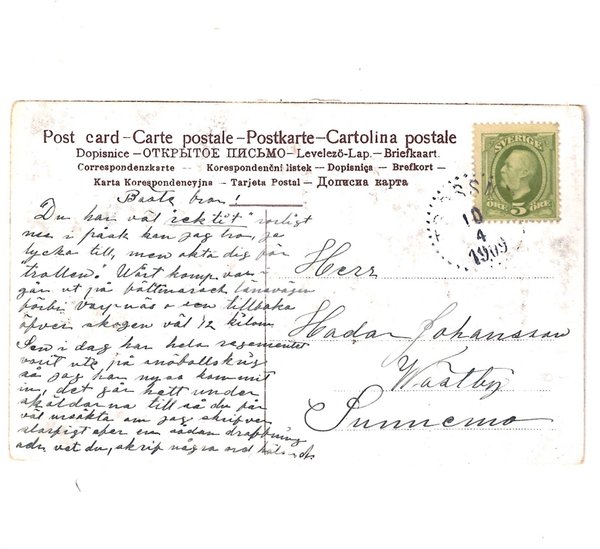 Post card – Carte postale – Postkarte – Cartolina postale
Dopisnice – ОТКРЫТОЕ ПИСЬМО – Levelező-Lap. – Briefkaart.
Correspondenzkarte – Korespondenční lístek – Dopisnica – Brefkort –
Karta Korespondencyjna – Tarjeta Postal – Дописна карта
SVERIGE
ÖRE 5 ÖRE
10
4
1909
Bästa bror!
Du har väl "rektit" roligt
men i påsk kan jag tro, ja
lycka till, men akta dig för
"trollen". Vårt komp. var i
går ut på
förbi och tillbaka
öfver skogen väl 1/2 kilom
Sen i dag har hela regementet
varit ute på snöbollskrig
så jag har nyss kommit
in, det går hett under
sköldarna till så du får
väl ursäkta om jag skrifver
slarfvigt efter en sådan drabbning
vet du, skrif några ord
Herr
Hadar Johansson
Wästby
Sunnemo